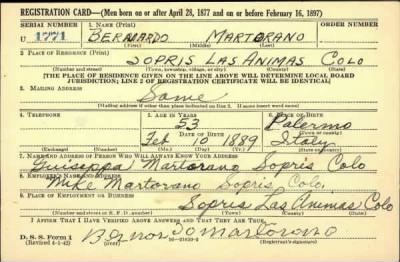 REGISTRATION CARD—(Men born on or after April 28, 1877 and on or before February 16, 1897)
SERIAL NUMBER 1. NAME (Print) ORDER NUMBER
U 1771 BERNARDO MARTORANO
(First) (Middle) (Last)
2. PLACE OF RESIDENCE (Print)
SOPRIS LAS ANIMAS COLO
(Number and street) (Town, township, village, or city) (County) (State)
[THE PLACE OF RESIDENCE GIVEN ON THE LINE ABOVE WILL DETERMINE LOCAL BOARD
JURISDICTION; LINE 2 OF REGISTRATION CERTIFICATE WILL BE IDENTICAL]
3. MAILING ADDRESS
Same
[Mailing address if other than place indicated on line 2. If same insert word same]
4. TELEPHONE 5. AGE IN YEARS 6. PLACE OF BIRTH
53 Palermo
DATE OF BIRTH (Town or county)
Feb 10 1889 Italy
(Exchange) (Number) (Mo.) (Day) (Yr.) (State or country)
7. NAME AND ADDRESS OF PERSON WHO WILL ALWAYS KNOW YOUR ADDRESS
Guiseppa Martorano Sopris Colo
8. EMPLOYER'S NAME AND ADDRESS
Mike Martorano Sopris, Colo.
9. PLACE OF EMPLOYMENT OR BUSINESS
Sopris Las Animas Colo
(Number and street or R. F. D. number) (Town) (County) (State)
I AFFIRM THAT I HAVE VERIFIED ABOVE ANSWERS AND THAT THEY ARE TRUE.
D. S. S. Form 1
(Revised 4-1-42) 16—21630-2 (Registrant's signature)